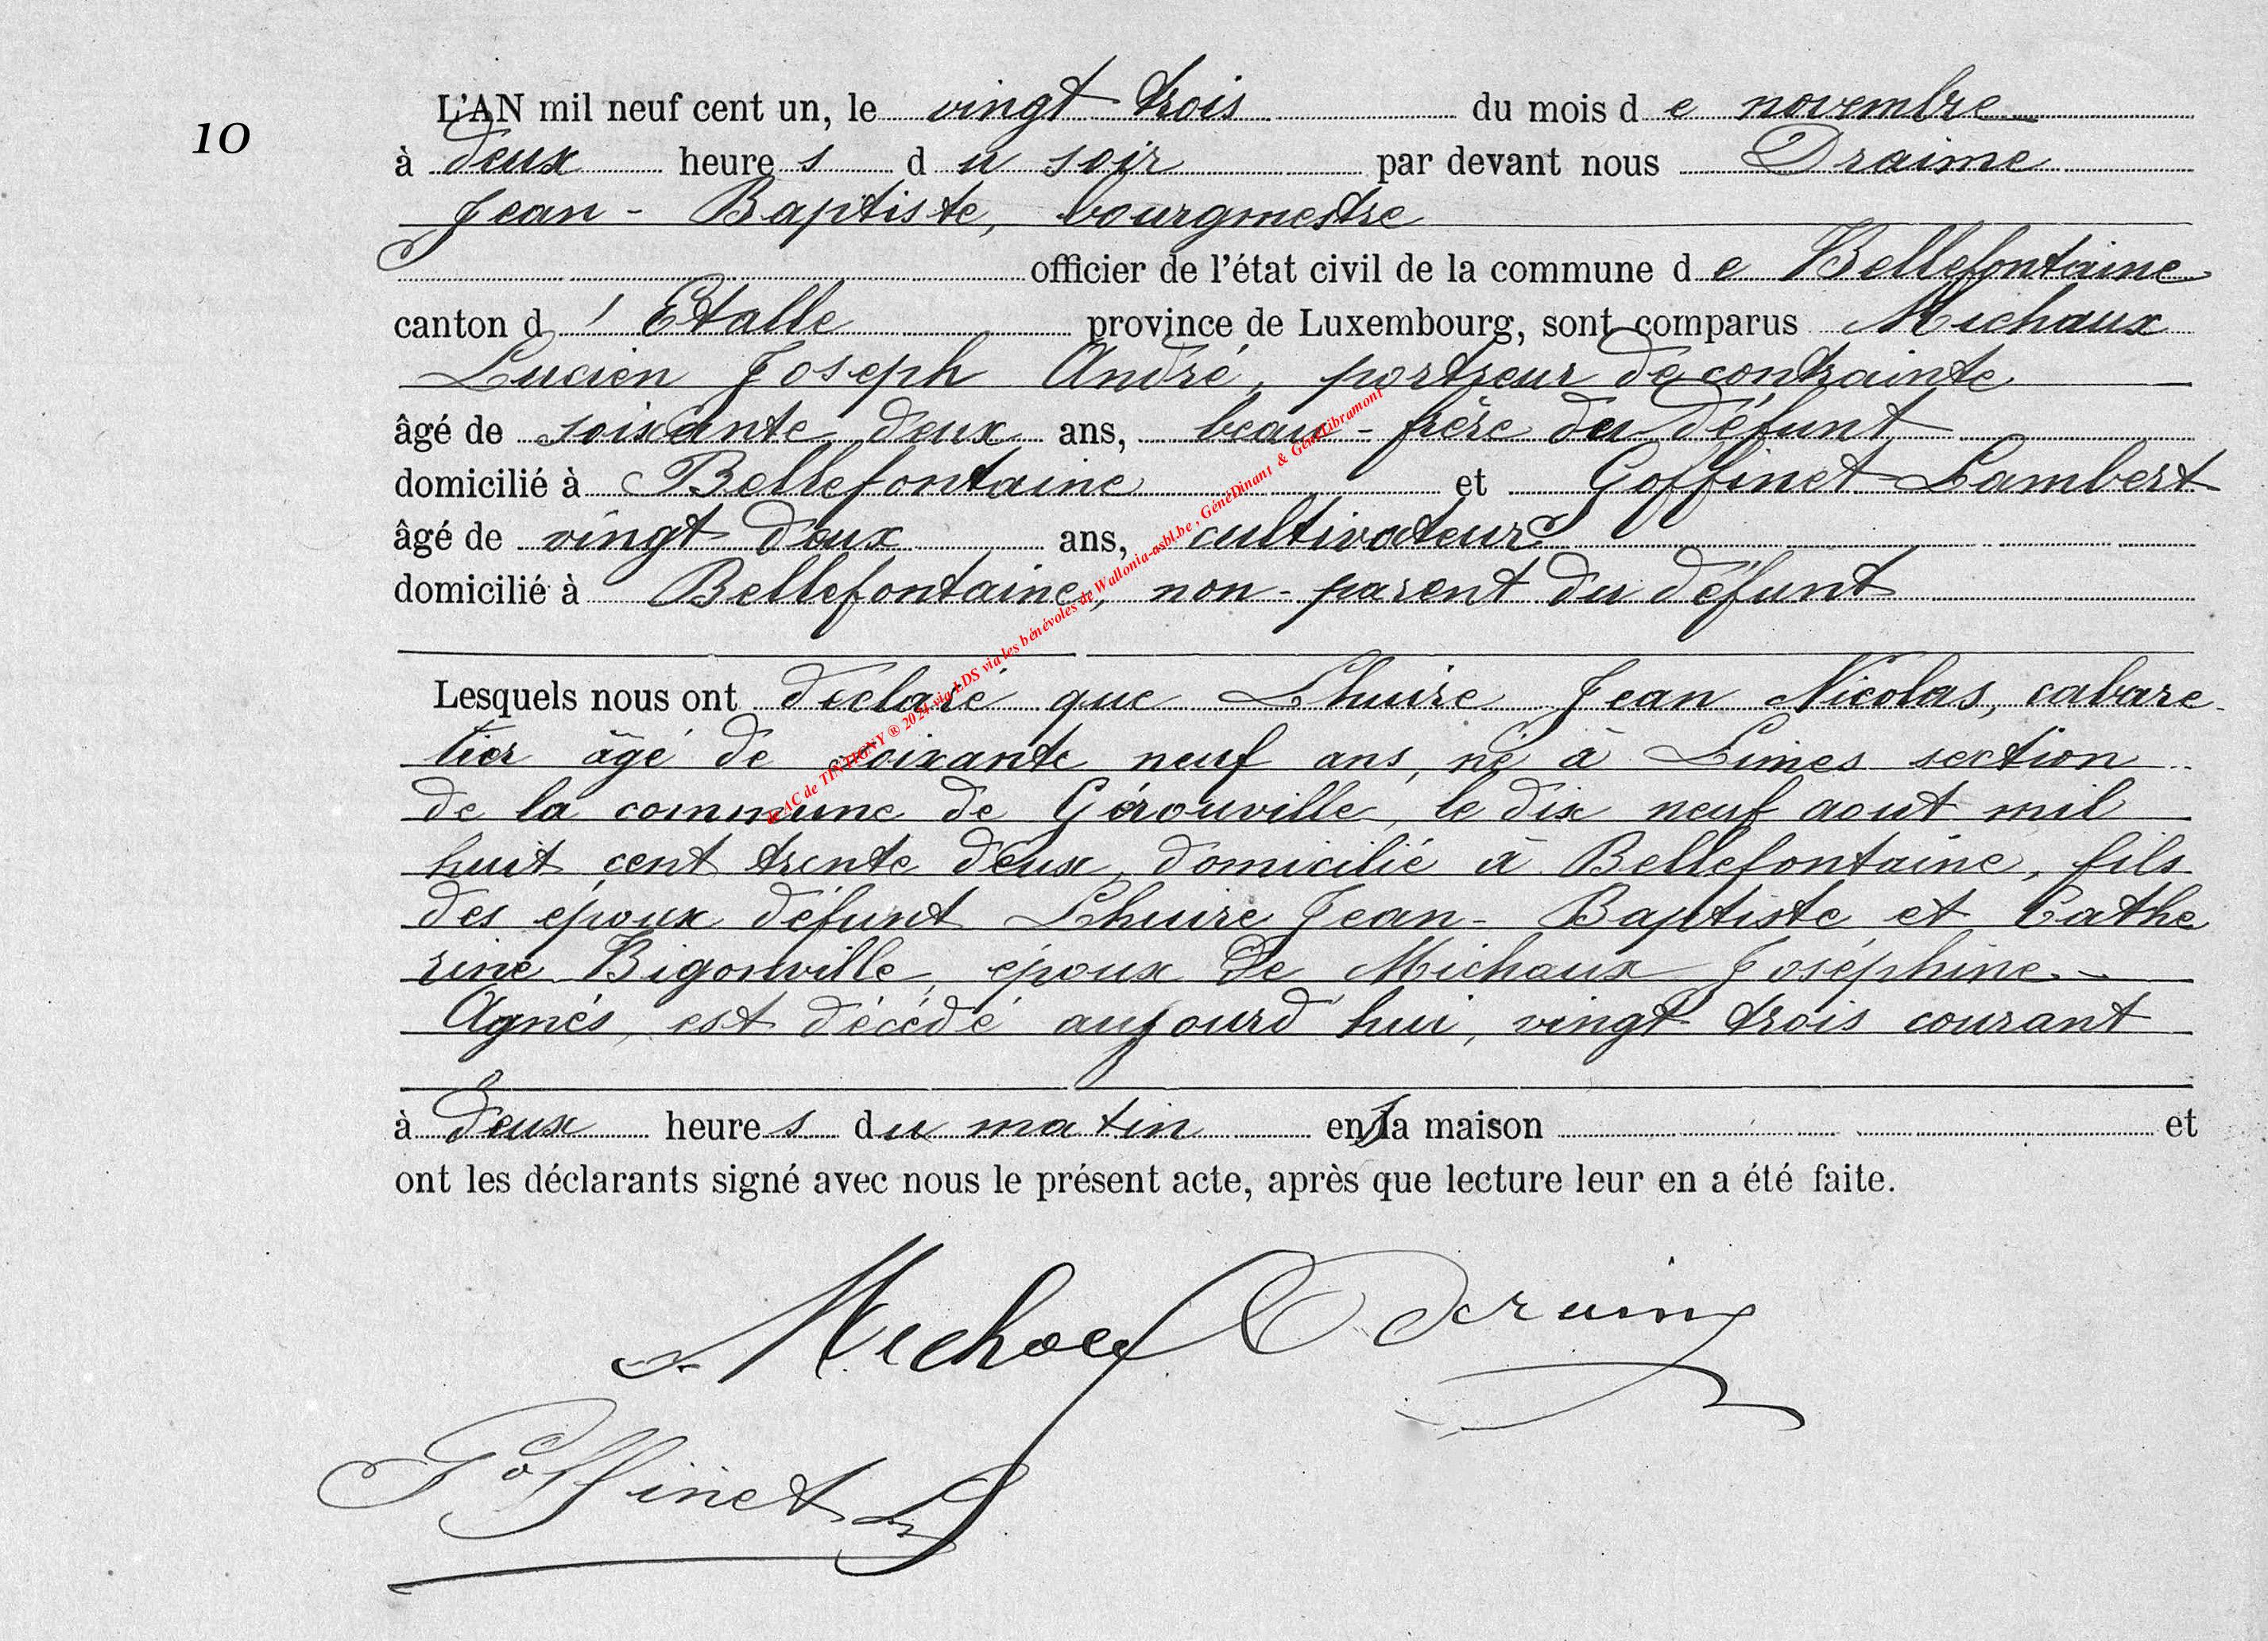 10
L'AN mil neuf cent un, le vingt trois du mois de novembre
à deux heures du soir par devant nous Draime
Jean-Baptiste, bourgmestre
officier de l'état civil de la commune de Bellefontaine
canton d'Etalle province de Luxembourg, sont comparus Michaux
Lucien Joseph André, portreur de contrainte
âgé de soixante deux ans, beau-frère du défunt
domicilié à Bellefontaine et Goffinet Lambert
âgé de vingt deux ans, cultivateur
domicilié à Bellefontaine, non-parent du défunt
Lesquels nous ont déclaré que Lhuire Jean Nicolas, cabare-
tier âgé de soixante neuf ans, né à Limes section
de la commune de Gérouville, le dix neuf aout mil
huit cent trente deux, domicilié à Bellefontaine, fils
des époux défunt Lhuire Jean-Baptiste et Cathe
rine Bigonville, époux de Michaux Joséphine
Agnés, est décédé aujourd'hui, vingt trois courant
à deux heures du matin en sa maison et
ont les déclarants signé avec nous le présent acte, après que lecture leur en a été faite.
Michaux
Goffinet L
© AC de TINTIGNY ® 2024 via LDS via les bénévoles de Wallonia-asbl.be , GénéDinant & GénéLibramont